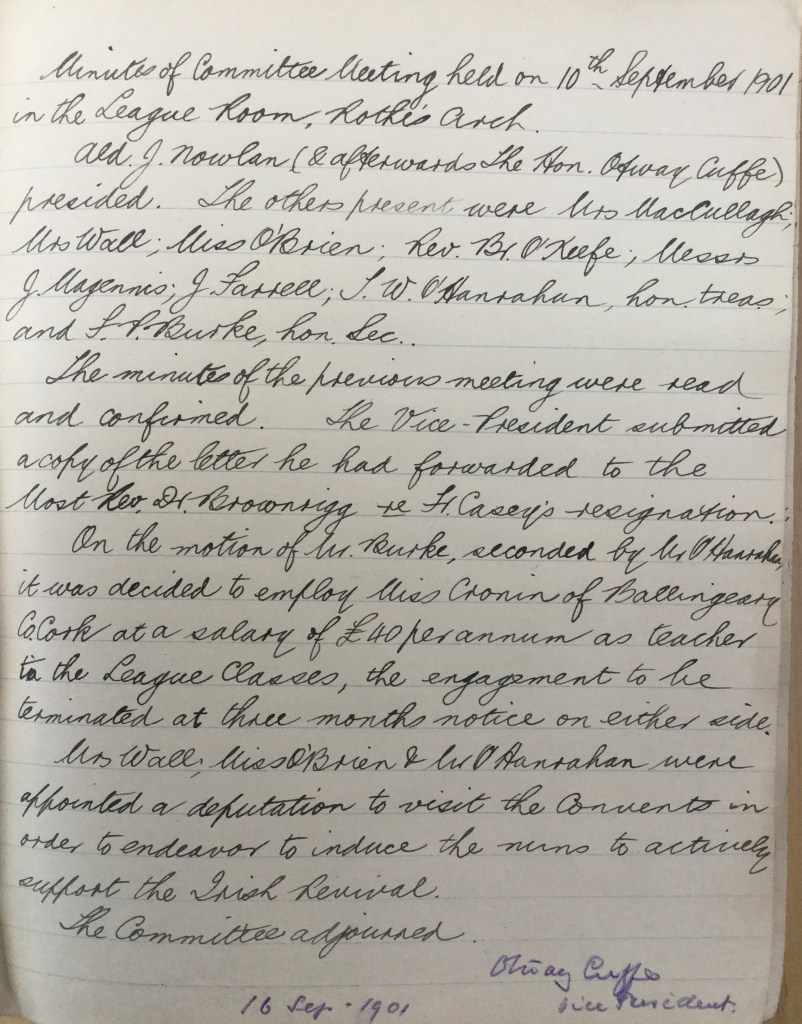 Minutes of Committee Meeting held on 10th September 1901
in the League Room, Rothe's Arch.
Ald. J. Nowlan (& afterwards The Hon. Otway Cuffe)
presided. The others present were Mrs MacCullagh;
Mrs Wall; Miss O'Brien; Rev. Br. O'Keefe; Messrs
J. Magennis; J. Farrell; T. W. O'Hanrahan, hon. treas;
and F. P. Burke, hon. Sec..
The minutes of the previous meeting were read
and confirmed. The Vice-President submitted
a copy of the letter he had forwarded to the
Most Rev. Dr. Brownrigg re Fr. Casey's resignation.
On the motion of Mr. Burke, seconded by Mr O'Hanrahan,
it was decided to employ Miss Cronin of Ballingeary
Co. Cork at a salary of £40 per annum as teacher
to the League Classes, the engagement to be
terminated at three months notice on either side.
Mrs Wall, Miss O'Brien & Mr O'Hanrahan were
appointed a deputation to visit the Convents in
order to endeavor to induce the nuns to actively
support the Irish Revival.
The Committee adjourned.
Otway Cuffe
16 Sep. 1901 Vice President.